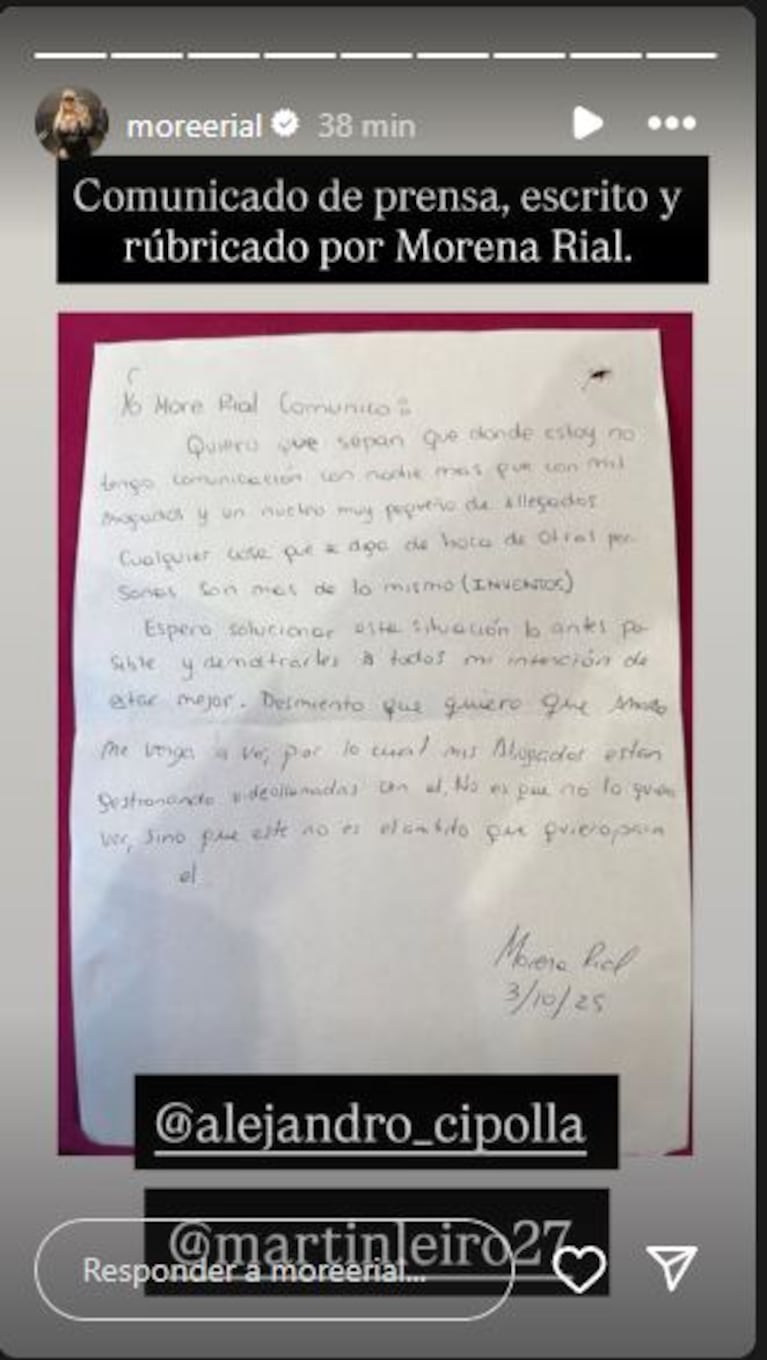 moreerial 38 min
Comunicado de prensa, escrito y
rúbricado por Morena Rial.
Yo More Rial Comunico:
Quiero que sepan que donde estoy no
tengo comunicación con nadie mas que con mis
Abogados y un nucleo muy pequeño de allegados
Cualquier cosa que se diga de boca de otras per-
sonas son mas de lo mismo (INVENTOS)
Espero solucionar esta situación lo antes po-
sible y demostrarles a todos mi intención de
estar mejor. Desmiento que quiero que
me venga a ver, por lo cual mis Abogados estan
gestionando videollamadas con el. No es que no lo quiera
ver, sino que este no es el ambito que quiero para
el
Morena Rial
3/10/25
@alejandro_cipolla
@martinleiro27
Responder a moreerial...